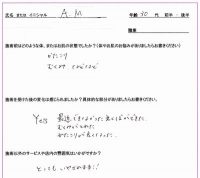 氏名 または イニシャル A.M 年齢 30 代 前半・後半
職業
施術前はどのような体、または お肌の状態でしたか?(体やお肌のお悩みがありましたらお書きください)
かたこり
むくみ
施術を受けた後の変化は感じられましたか?具体的な部分がありましたらお書きください。
Yes
むくみがとれた
かたこりが良くなった。
施術以外のサービスや店内の雰囲気はいかがですか?
とっても いやされます!!